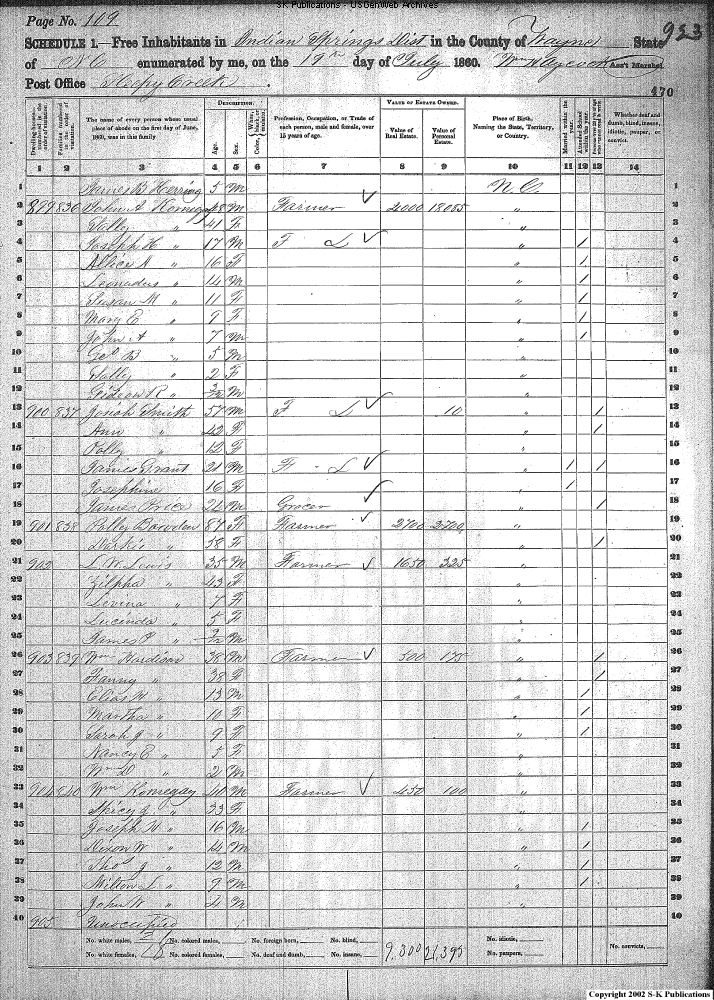 SK Publications - USGenWeb Archives
Page No. 109
923
SCHEDULE 1.—Free Inhabitants in Indian Springs Dist in the County of Wayne State
of N C enumerated by me, on the 19th day of July 1860. Wm Haycock Ass't Marshal
Post Office Sleepy Creek
470
Dwelling-houses numbered in the order of visitation.
Families numbered in the order of visitation.
The name of every person whose usual place of abode on the first day of June, 1860, was in this family
DESCRIPTION.
Age.
Sex.
Color,
Profession, Occupation, or Trade of each person, male and female, over 15 years of age.
VALUE OF ESTATE OWNED.
Value of Real Estate.
Value of Personal Estate.
Place of Birth, Naming the State, Territory, or Country.
Married within the year.
Attended School within the year.
Whether deaf and dumb, blind, insane, idiotic, pauper, or convict.
1 2 3 4 5 6 7 8 9 10 11 12 13 14
1 James B Herring 5 M N C 1
2 899 836 John A Kornegay 48 M Farmer 2000 18055 " 2
3 Sally " 41 F " 3
4 Joseph H " 17 M F L " / 4
5 Alice A " 16 F " / 5
6 Leonadus " 14 M " / 6
7 Susan M " 11 F " / 7
8 Mary E " 9 F " / 8
9 John A " 7 M " / 9
10 Geo B " 5 M " 10
11 Sally " 2 F " 11
12 Gideon R " M " 12
13 900 837 Josiah Smith 57 M F L 10 " / 13
14 Ann " 42 F " / 14
15 Polly " 12 F " 15
16 James Grant 21 M F L " / / 16
17 Josephine 16 F " / 17
18 James Price 24 M Grocer " / 18
19 901 838 Polly Bowden 87 F Farmer 2700 2700 " 19
20 " 58 F " / 20
21 902 L. W. Lewis 35 M Farmer 1650 325 " 21
22 Zilpha " 43 F " 22
23 Levena " 7 F " 23
24 Lucinda " 5 F " 24
25 James P " M " 25
26 903 839 Wm Hardison 38 M Farmer 500 175 " / 26
27 Fanny " 38 F " / 27
28 Elias H " 13 M " / 28
29 Martha " 10 F " / 29
30 Sarah J " 9 F " / 30
31 Nancy C " 5 F " 31
32 Wm " 2 M " 32
33 904 840 Wm Kornegay 40 M Farmer 450 100 " 33
34 Spicy J " 33 F " 34
35 Joseph W " 16 M " / 35
36 Dixon W " 14 M " / 36
37 Thos J " 12 M " / 37
38 Milton L " 9 M " / 38
39 John W " 4 M " 39
40 905 Unoccupied 40
No. white males, No. colored males, No. foreign born, No. blind, No. idiotic, No. convicts,
No. white females, 18 No. colored females, No. deaf and dumb, No. insane, 9,300 21,395 No. paupers,
Copyright 2002 S-K Publications